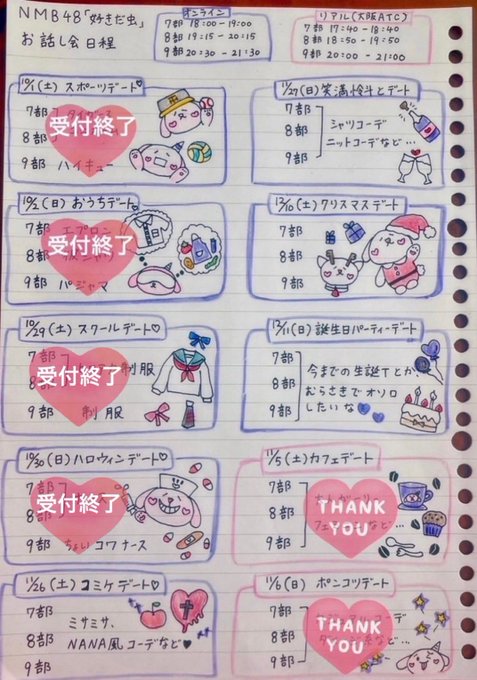 NMB48「好きだ虫」
お話し会日程
オンライン
7部 18:00-19:00
8部 19:15-20:15
9部 20:30-21:30
リアル(大阪ATC)
7部 17:40-18:40
8部 18:50-19:50
9部 20:00-21:00
10/1(土)スポーツデート♡
7部
8部
9部 ハイキュー
受付終了
10/2(日)おうちデート
7部 エプロン
8部
9部 パジャマ
受付終了
10/29(土)スクールデート♡
7部
8部 制服
9部 制服
受付終了
10/30(日)ハロウィンデート♡
7部
8部
9部 ちょいコワナース
受付終了
11/26(土)コミケデート♡
7部
8部
9部
ミサミサ、
NANA風コーデなど♥
11/27(日)笑満怜斗とデート
7部
8部
9部
シャツコーデ
ニットコーデなど...
12/10(土)クリスマスデート
7部
8部
9部
12/11(日)誕生日パーティーデート
7部
8部
9部
今までの生誕Tとか、
むらさきでオソロ
したいな
11/5(土)カフェデート
7部
8部
9部
など...
THANK
YOU
11/6(日)ポンコツデート
7部
8部
9部
など...
THANK
YOU